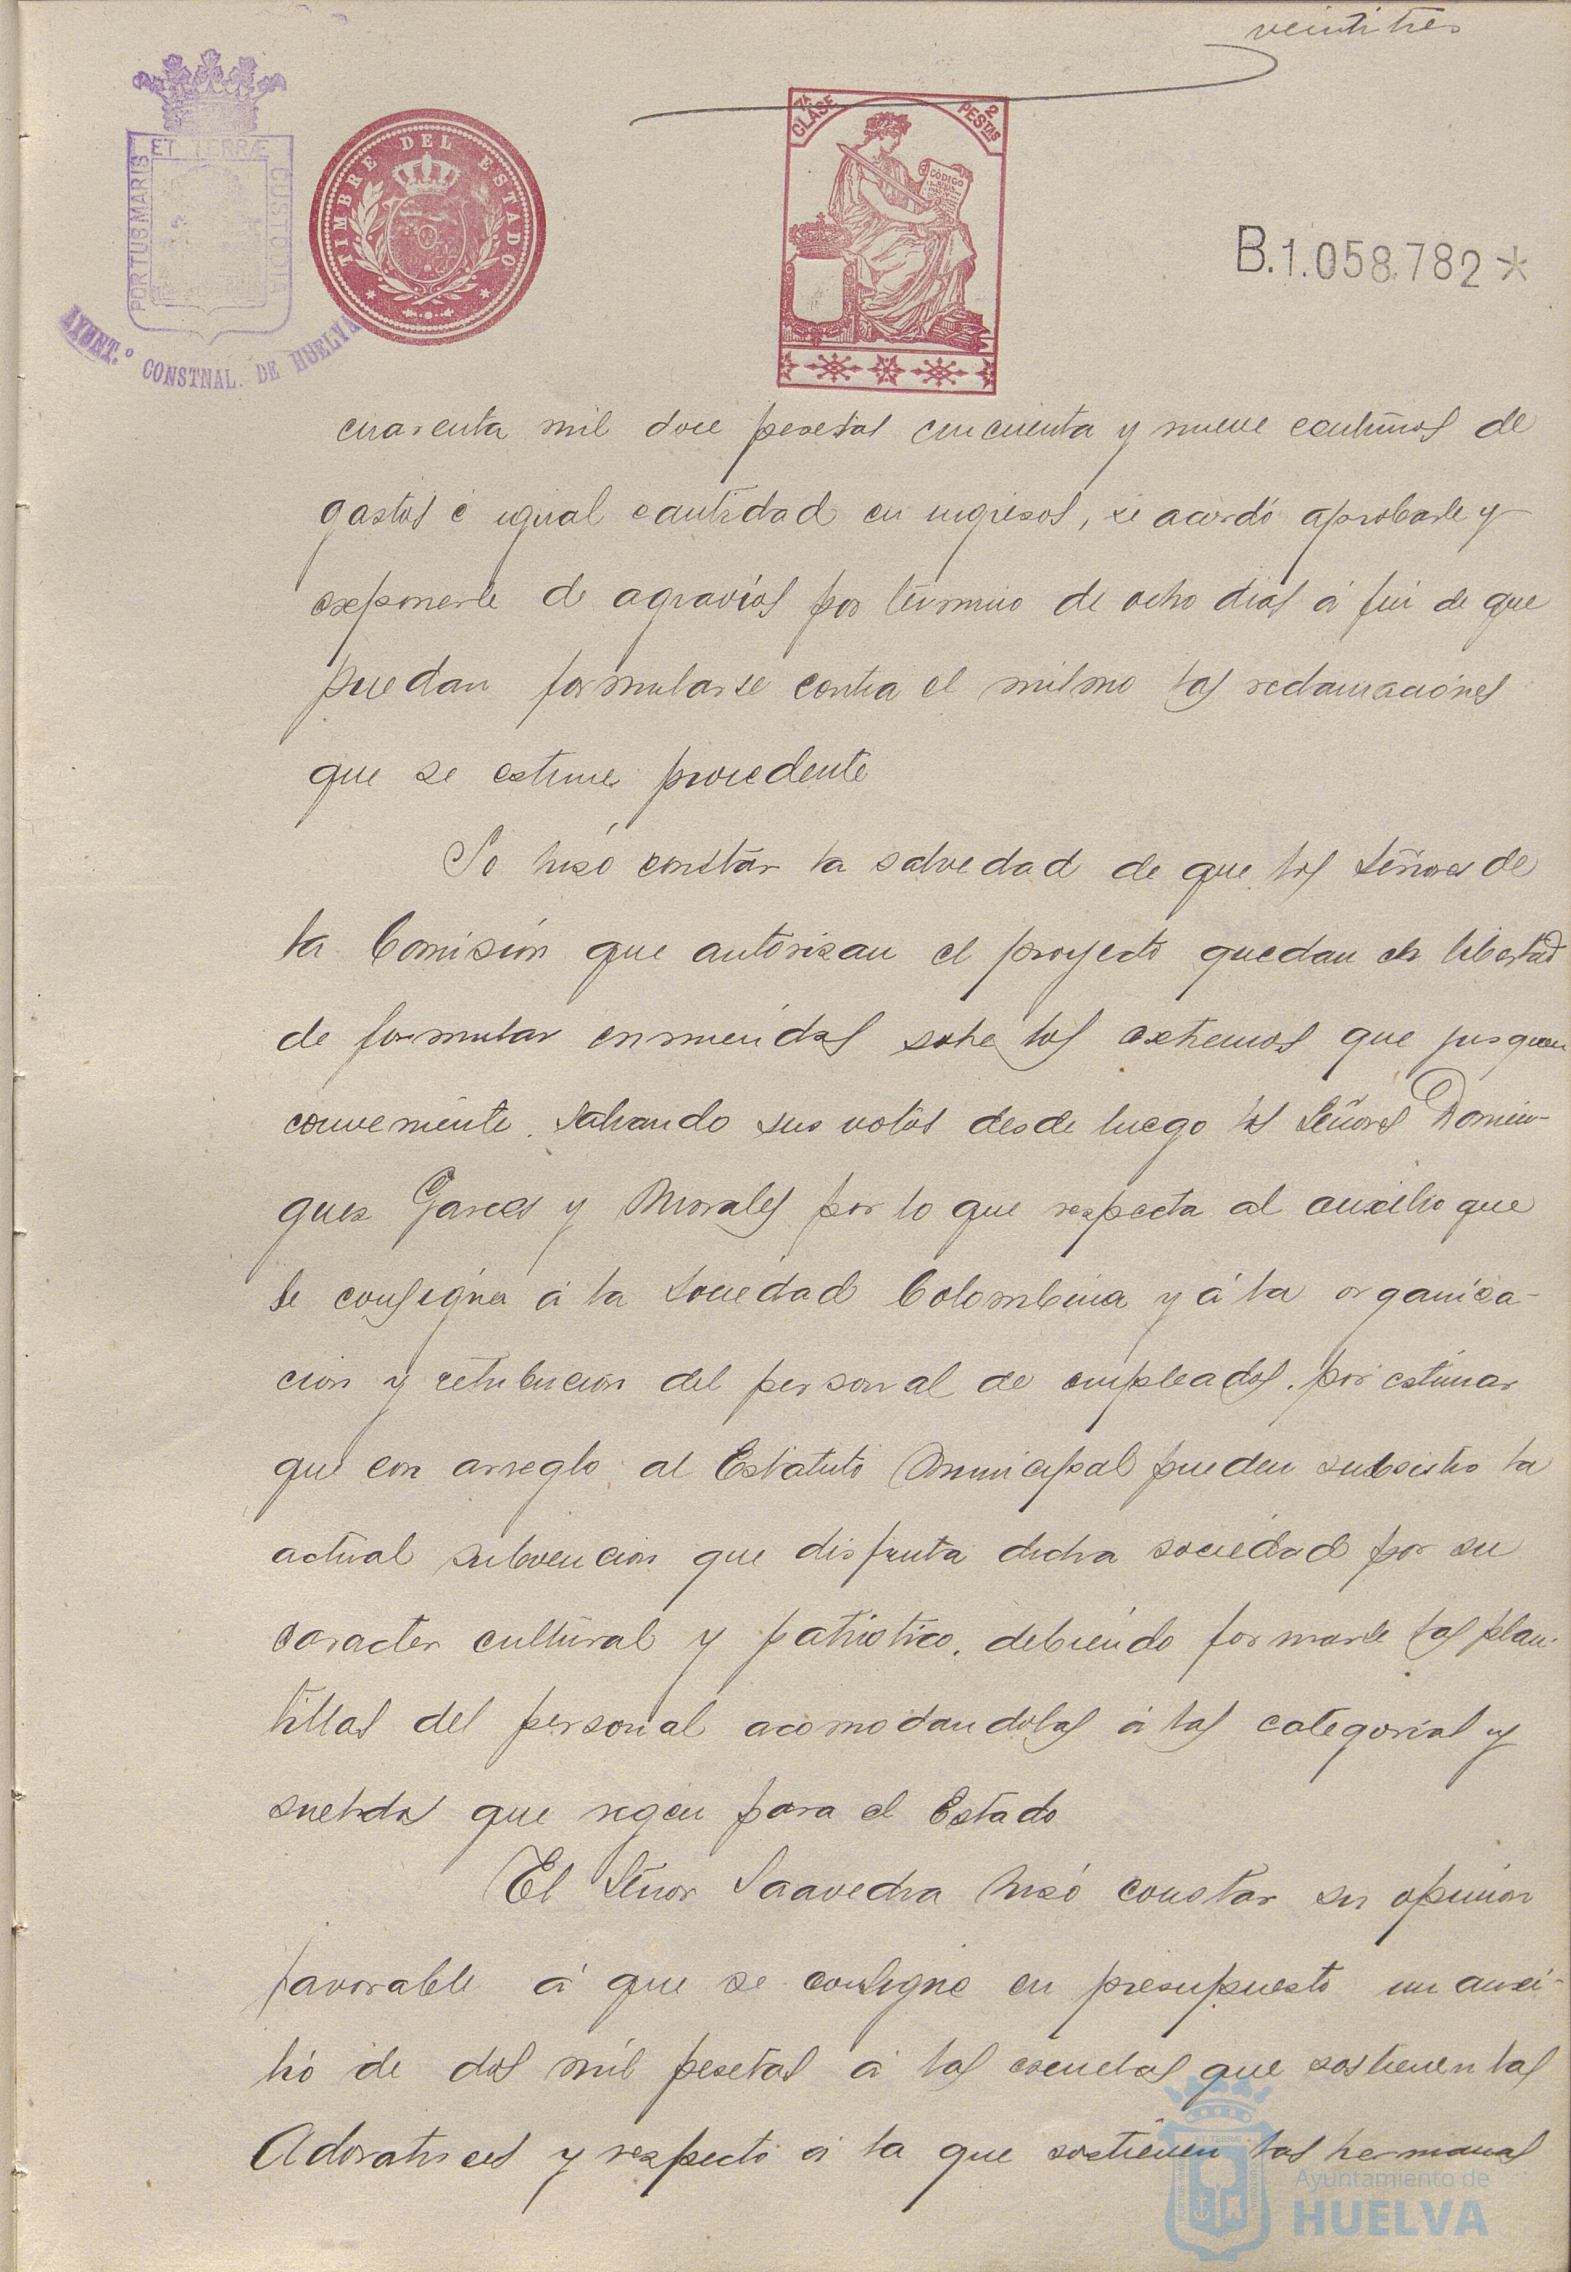 veintitres
ET TERRÆ
PORTUS MARIS
CUSTODI
AYUNT.º CONSTNAL. DE HUELVA
TIMBRE DEL ESTADO
7ª CLASE
2 PESTAS
CÓDIGO
B.1.058.782*
cuarenta mil doce pesetas cincuenta y nueve centimos de
gastos é igual cantidad en ingresos, se acordó aprobarle y
exponerle de agravios por término de ocho dias á fin de que
puedan formularse contra el mismo las reclamaciones
que se estime procedente
Se hizó constar la salvedad de que los Señores de
la Comisión que autorizan el proyecto quedan en libertad
de formular enmiendas sobre los extremos que juzguen
conveniente, salvando sus votos desde luego los Señores Domin-
guez Garces y Morales por lo que respecta al auxilio que
se consigna á la Sociedad Colombina y á la organiza-
cion y retribucion del personal de empleados, por estimar
que con arreglo al Estatuto Municipal pueden subsistir la
actual subvencion que disfruta dicha sociedad por su
caracter cultural y patriotico, debiendo formarse las plan-
tillas del personal acomodandolas á las categorias y
sueldos que rigen para el Estado
El Señor Saavedra hizó constar su opinion
favorable á que se consigne en presupuesto un auxi-
lio de dos mil pesetas á las escuelas que sostienen las
Adoratrices y respecto á la que sostienen las hermanas
Ayuntamiento de
HUELVA